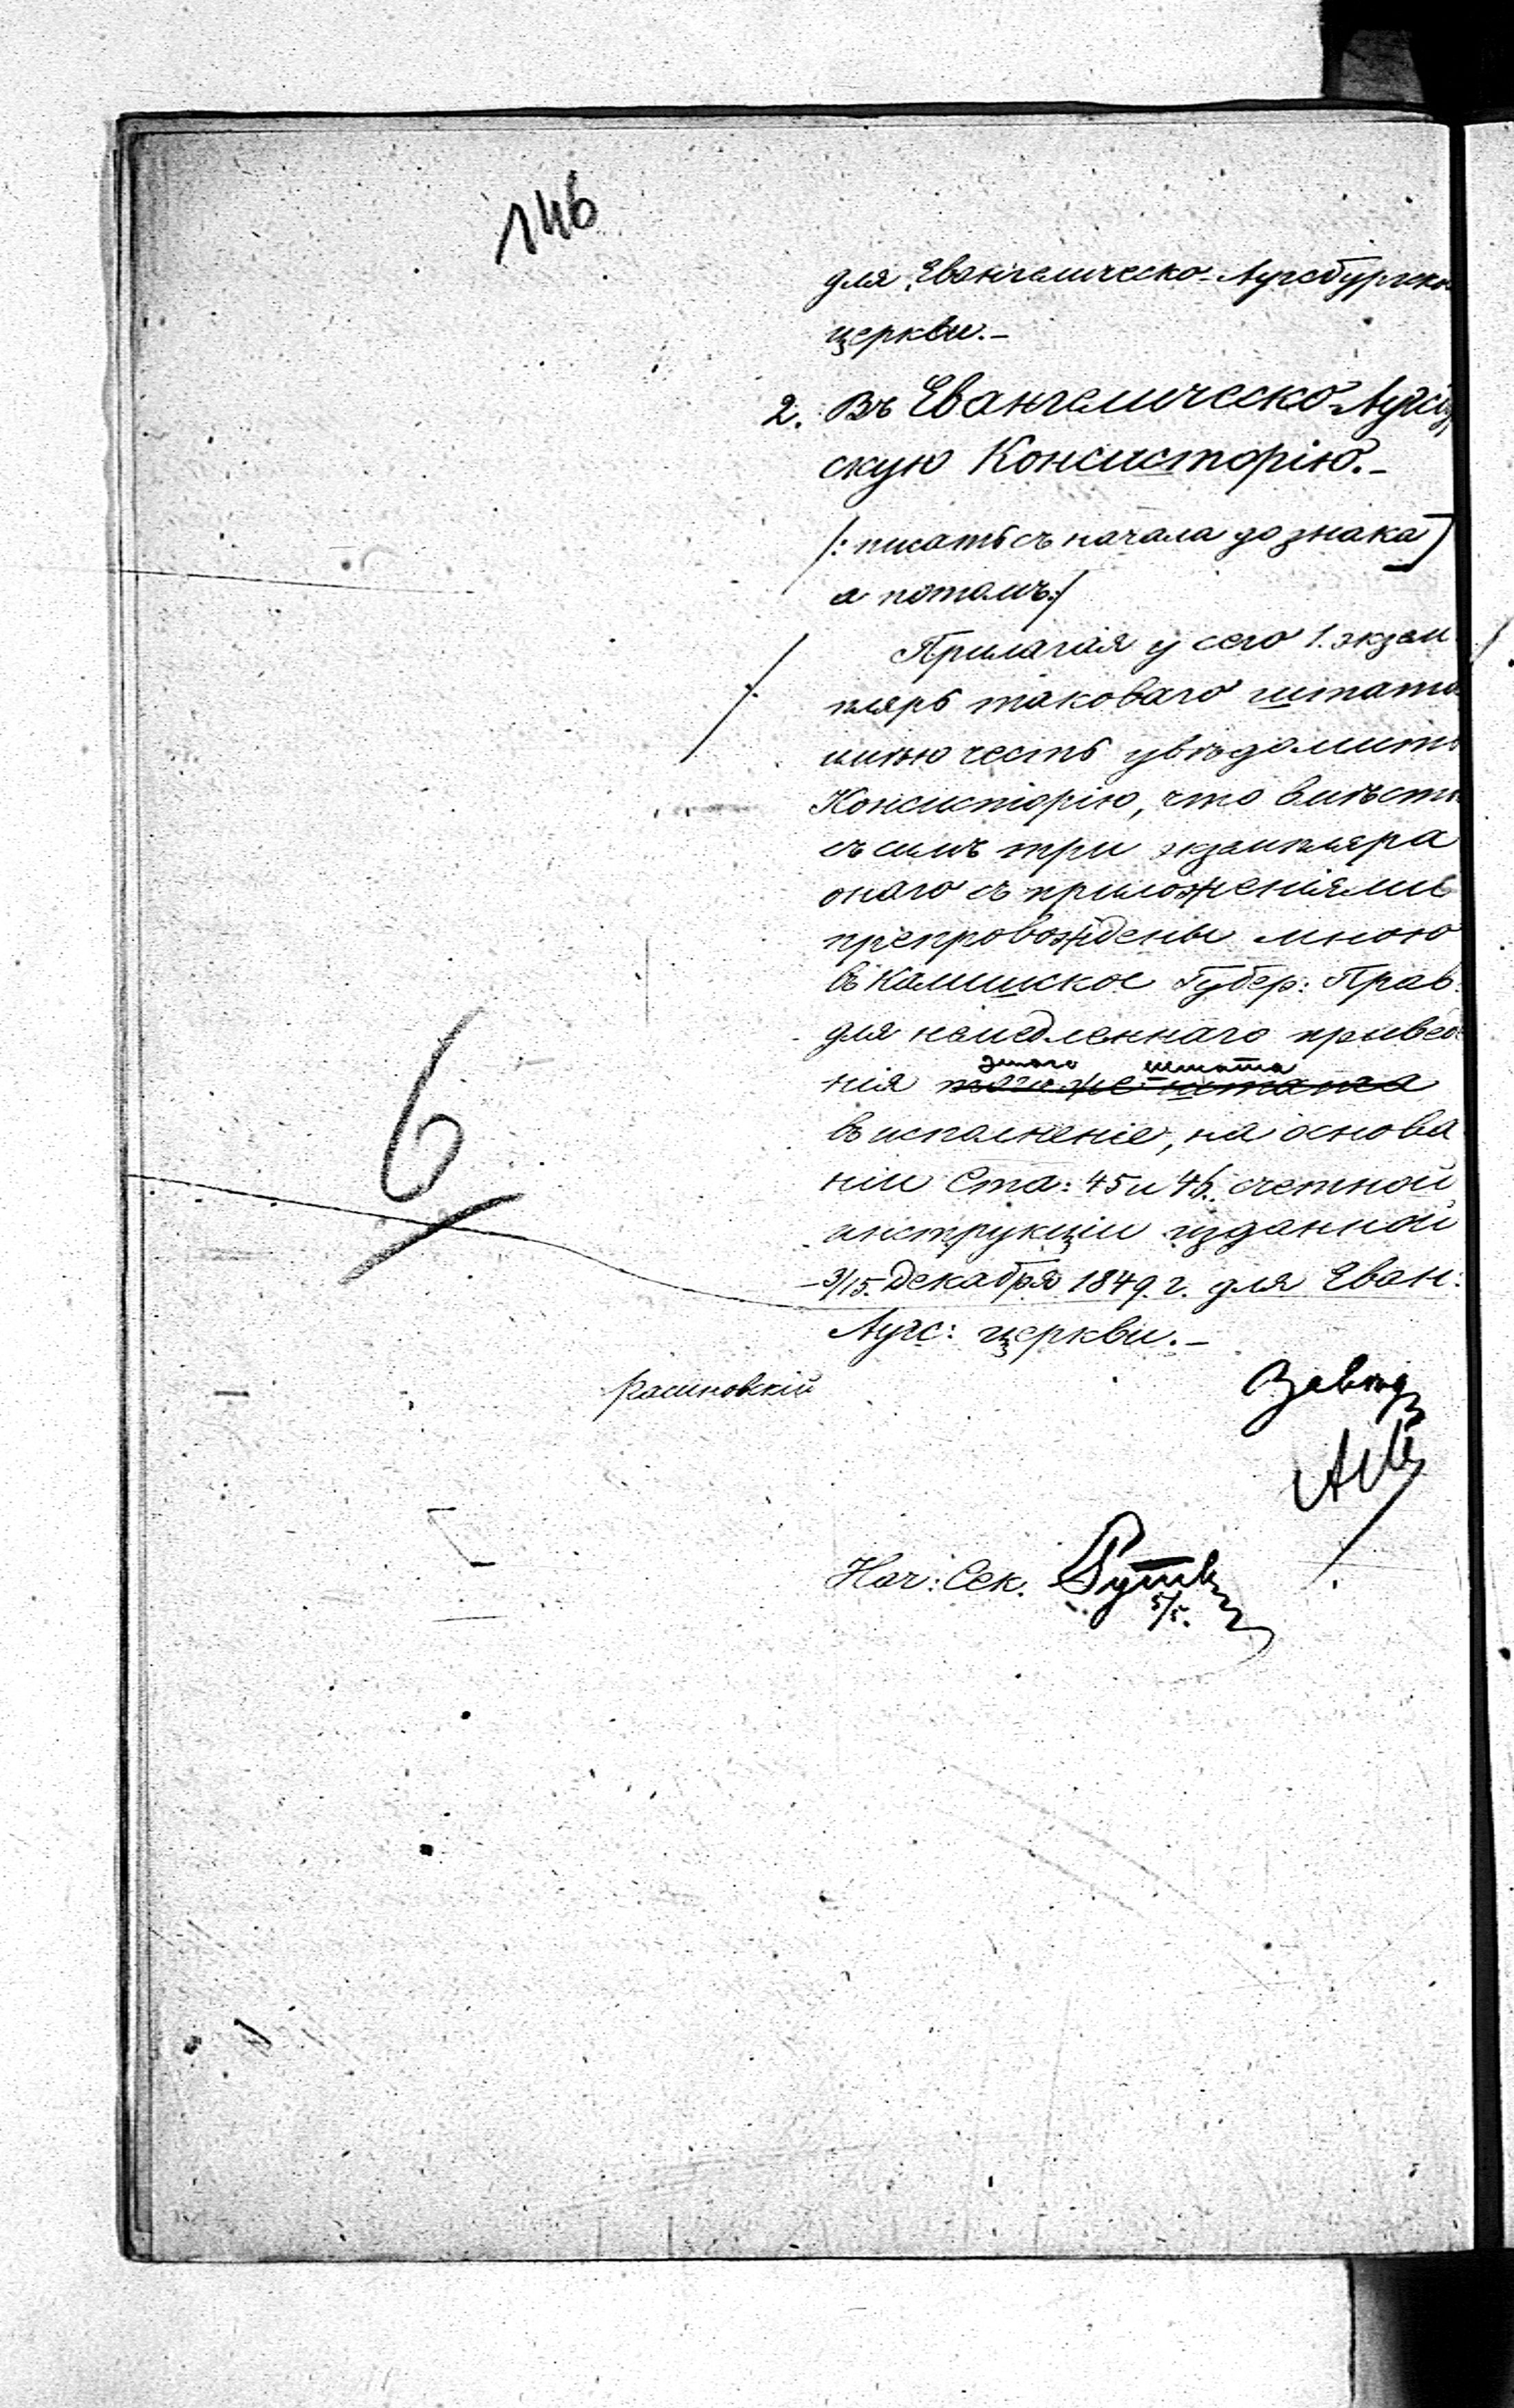 146
для Евангелическо-Аугсбургско
церкви.-
2. Въ Евангелическо-Аугсб
скую Консисторію.-
/: писать съ начала до знака ]
а потомъ :/
Прилагая у сего 1. экзем
пляръ таковаго штата
имѣю честь увѣдомить
Консисторію, что вмѣстѣ
съ симъ три экземпляра
онаго съ приложеніями
препровождены мною
въ Калишское Губер: Прав:
для немедленнаго приведе
этого штата
нія тогоже штата
въ исполненіе, на основа
ніи Ста: 45 и 46. счетной
инструкціи изданной
3/15. Декабря 1849. г. для Еван:
Аугс: церкви.-
6
Нач: Сек.
5/5.